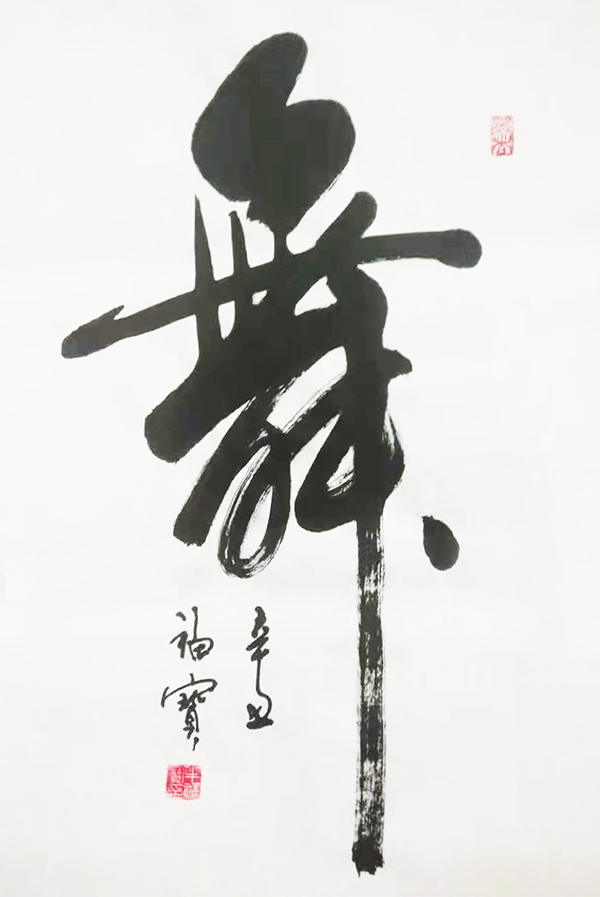 舞
辛丑
福寳